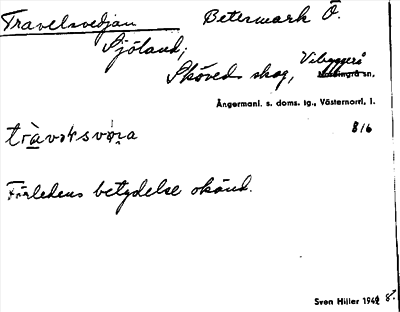 Travelsvedjan Betesmark Ö.
Sjöland,
Sköveds skog, Vibyggerå
Nordingrå sn.
Ångermanl. s. doms. tg., Västernorrl. l.
B16
Förledens betydelse okänd.
Sven Hiller 1948